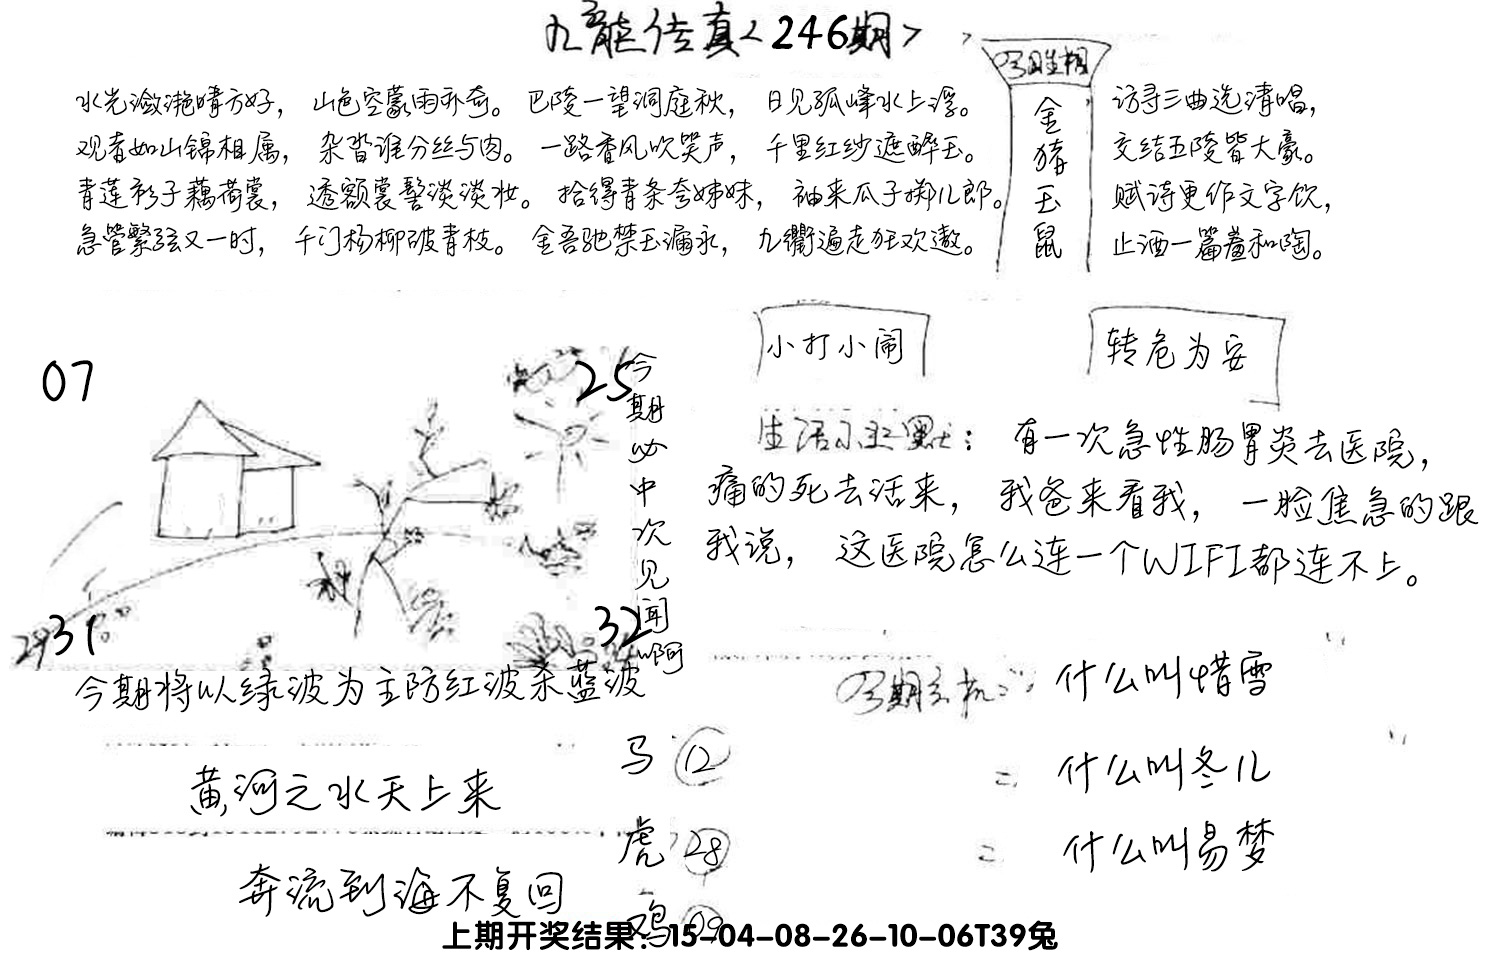 九龙传真<246期>
今期生相
金猪玉鼠
水光潋滟晴方好，山色空蒙雨亦奇。巴陵一望洞庭秋，日见孤峰水上浮。
观者如山锦相属，杂沓谁分丝与肉。一路香风吹笑声，千里红纱遮醉玉。
青莲衫子藕荷裳，透额裳髻淡淡妆。拾得青条夸姊妹，袖来瓜子掷儿郎。
急管繁弦又一时，千门杨柳破青枝。金吾驰禁玉漏永，九衢遍走狂欢遨。
访寻三曲选清唱，
交结五陵皆大豪。
赋诗更作文字饮，
止酒一篇羞和陶。
小打小闹
转危为安
07
25
29
31
32
今期必中次见闻啊
生活小幽默：有一次急性肠胃炎去医院，
痛的死去活来，我爸来看我，一脸焦急的跟
我说，这医院怎么连一个WIFI都连不上。
今期将以绿波为主防红波杀蓝波
今期玄机：什么叫惜雪
= 什么叫冬儿
= 什么叫易梦
黄河之水天上来
奔流到海不复回
马 12
虎 28
鸡 09
上期开奖结果：15-04-08-26-10-06T39兔